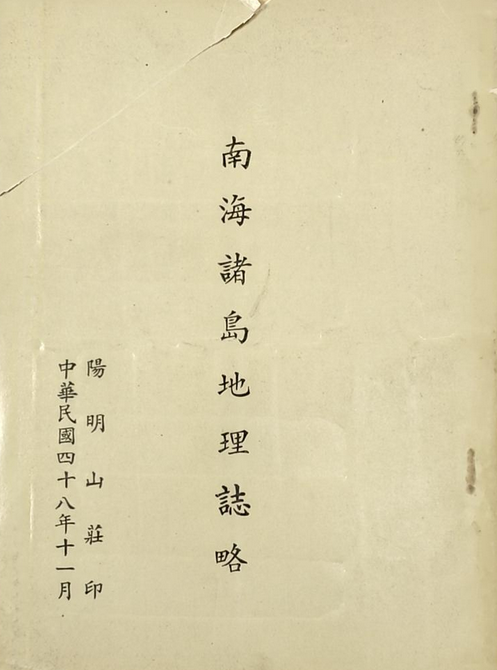 南海諸島地理誌略
陽明山莊印
中華民國四十八年十一月